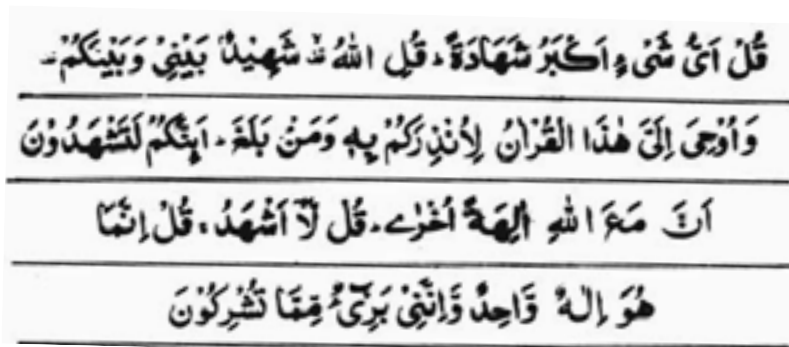 قُلْ اَیُّ شَیْءٍ اَكْبَرُ شَهَادَةً ۔ قُلِ اللهُ شَهِیْدٌۢ بَیْنِیْ وَبَیْنَكُمْ ۔
وَ اُوْحِیَ اِلَیَّ هٰذَا الْقُرْاٰنُ لِاُنْذِرَكُمْ بِهٖ وَمَنْۢ بَلَغَ ۔ اَئِنَّكُمْ لَتَشْهَدُوْنَ
اَنَّ مَعَ اللهِ اٰلِهَةً اُخْرٰے ۔ قُل لَّاۤ اَشْهَدُ ، قُلْ اِنَّمَا
هُوَ اِلٰهٌ وَّاحِدٌ وَّاِنَّنِیْ بَرِیْٓءٌ مِّمَّا تُشْرِكُوْنَ